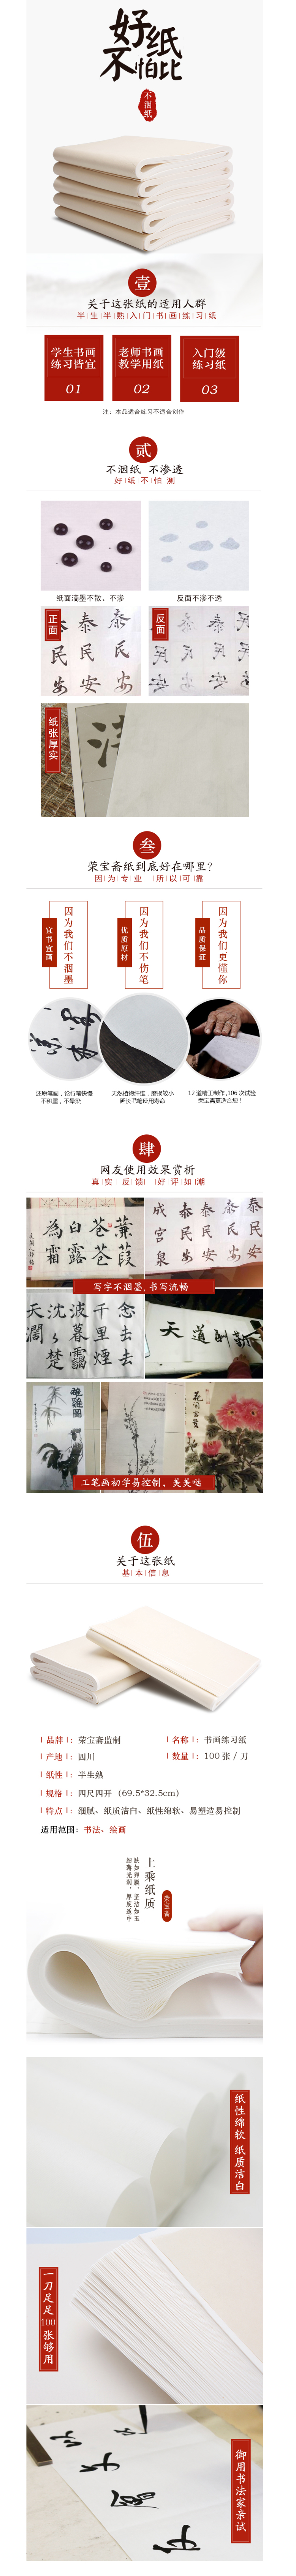 好纸
不怕比
不洇纸
壹
关于这张纸的适用人群
半生半熟入门书画练习纸
学生书画
练习皆宜
01
老师书画
教学用纸
02
入门级
练习纸
03
注：本品适合练习不适合创作
贰
不洇纸 不渗透
好纸不怕测
纸面滴墨不散、不渗
反面不渗不透
正面
泰泰
民民民
安安安
反面
纸张厚实
叁
荣宝斋纸到底好在哪里?
因为专业 所以可靠
宜书宜画
因为我们不洇墨
优质原材
因为我们不伤笔
品质保证
因为我们更懂你
还原笔画，论行笔快慢
不积墨，不晕染
天然植物纤维，磨损较小
延长毛笔使用寿命
12道精工制作,106次试验
荣宝斋更适合您！
肆
网友使用效果赏析
真实 反馈 好评如潮
蒹葭
苍苍
白露
為霜
写字不洇墨，书写流畅
念去去
千里煙
波暮靄
沈沈楚
天闊
天道酬勤
工笔画初学易控制，美美哒
伍
关于这张纸
基本信息
品牌：荣宝斋监制
名称：书画练习纸
产地：四川
数量：100张/刀
纸性：半生熟
规格：四尺四开（69.5*32.5cm）
特点：细腻、纸质洁白、纸性绵软、易塑造易控制
适用范围：书法、绘画
上乘纸质
荣宝斋
肤如卵膜，坚洁如玉
细薄光润，厚度适中
纸性绵软 纸质洁白
一刀足足100张够用
御用书法家亲试